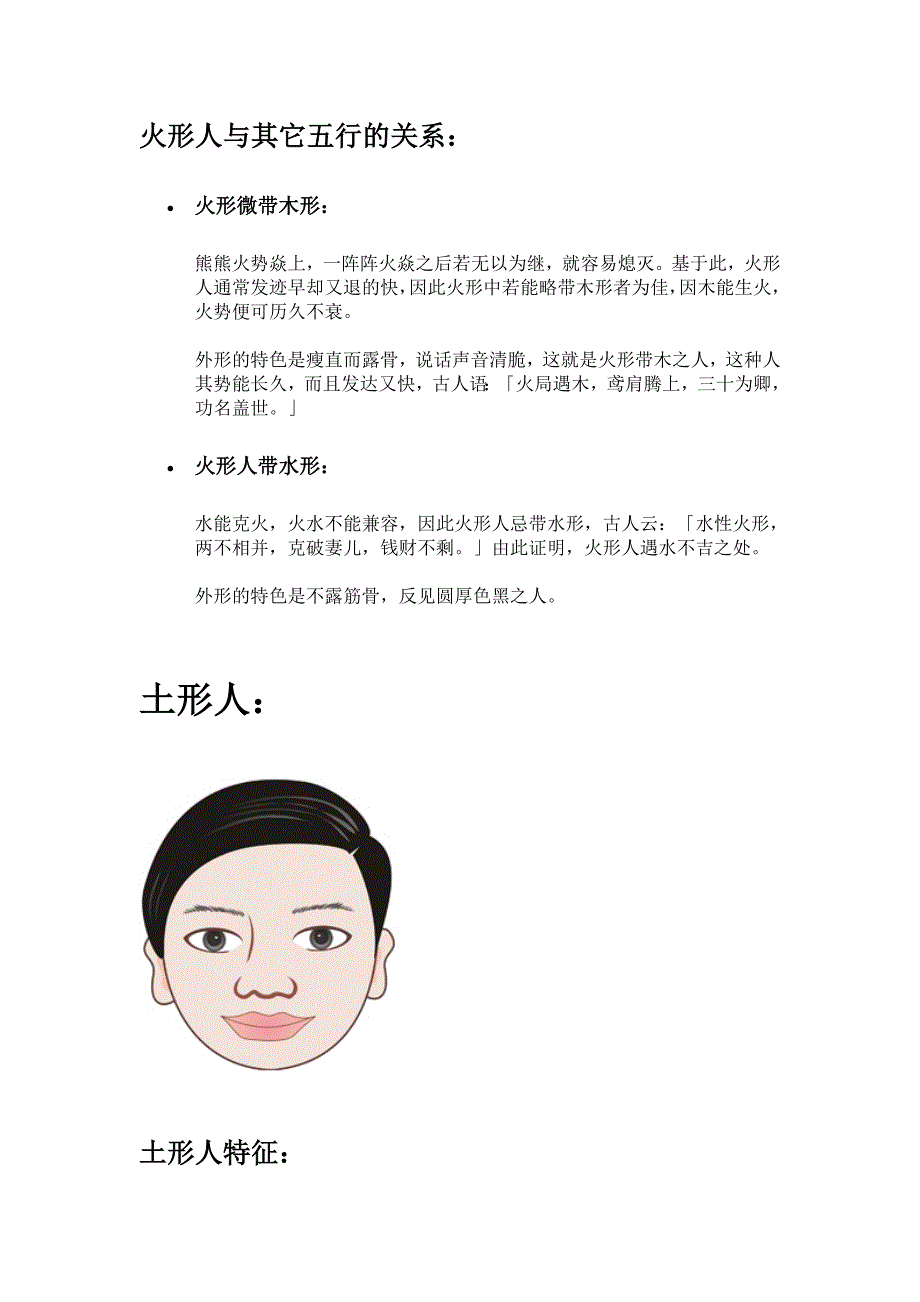 火形人与其它五行的关系：
• 火形微带木形：
熊熊火势焱上，一阵阵火焱之后若无以为继，就容易熄灭。基于此，火形
人通常发迹早却又退的快，因此火形中若能略带木形者为佳，因木能生火，
火势便可历久不衰。
外形的特色是瘦直而露骨，说话声音清脆，这就是火形带木之人，这种人
其势能长久，而且发达又快，古人语「火局遇木，鸢肩腾上，三十为卿，
功名盖世。」
• 火形人带水形：
水能克火，火水不能兼容，因此火形人忌带水形，古人云：「水性火形，
两不相并，克破妻儿，钱财不剩。」由此证明，火形人遇水不吉之处。
外形的特色是不露筋骨，反见圆厚色黑之人。
土形人：
土形人特征：